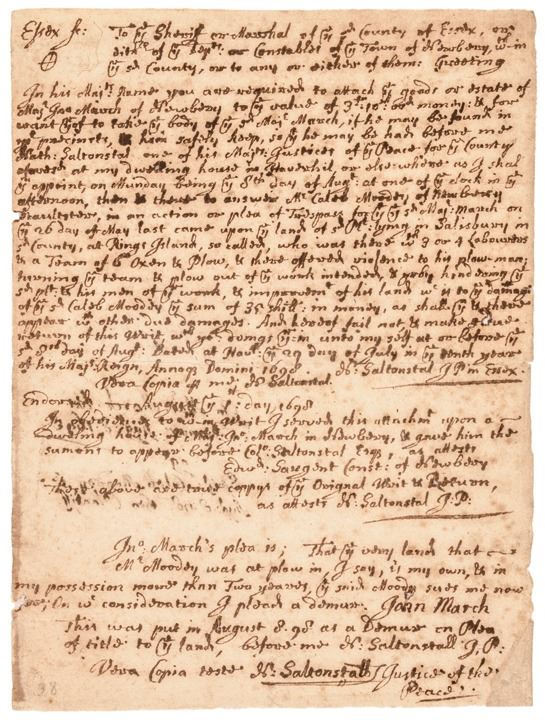 Essex ss: To ye Sheriff or Marshal of ye County of Essex, or
of ye Constables of ye Town of Newbery, wth in
ye sd County, or to any or either of them: Greeting
In his Majts: Name you are required to attach ye goods or estate of
Majr Jno March of Newbery to ye value of money: & for
want yrof to take ye body of ye sd Majr March, if he may be found in
yor precincts, & him safely keep, so yt he may be had before me
Nath: Saltonstal one of his Majts: Justices of ye Peace for ye County
aforesd at my dwelling house in Haverhil, or elsewhere as I shal
appoint, on Munday being ye 8th day of Augt: at one of ye clock in ye
afternoon, then & there to answer Mr Caleb Moodey of Newberry
Maultster, in an action or plea of Trespass, for yt ye sd Maj: March on
ye 26 day of May last came upon ye land of sd lying in Salisbury in
sd County, at Rings Island, so called, who was there wth 3 or 4 Labourers
& a Team of 6 Oxen & Plow, & there offered violence to his plow-man;
turning ye team & plow out of ye work intended, hindering ye
sd plt: & his men of ye work, & improvemt of his land wch is to ye damage
of ye sd Caleb Moodey ye sum of 35 shill: in money, as shall there
appear wth other due damages. And hereof fail not & make true
return of this Writ, wth yor doings in unto my self at or before ye
sd day of Augt: Dated at Havll: ye 29 day of July in ye tenth year
of his Majts Reign, Annoqe Domini 1698 N: Saltonstal J P in Essex.
Vera Copia p me N: Saltonstal.
Endorsed August ye 1: day, 1698
In obedience to wth in Writ I served this attachmt upon a
dwelling house of Majr: Jno: March in Newberry, & gave him the
sumons to appear before Colo: Saltonstal Esqr, as attests
Edw: Sargent Const: of Newbery
These above are true coppys of ye Orignal Writ & Return,
as attests N: Saltonstal J:P:
Jno: March's plea is; That ye very land that
Mr Moodey was at plow in I say, is my own, & in
my possession more than Two yeares, ye said Moody sues me now
On wch consideration I plead a demur. John March
This was put in August 8. 98 as a Demur on Plea
of title to ye land, before me N: Saltonstall J.P.
Vera Copia teste N: Saltonstall Justice of the
Peace.
98